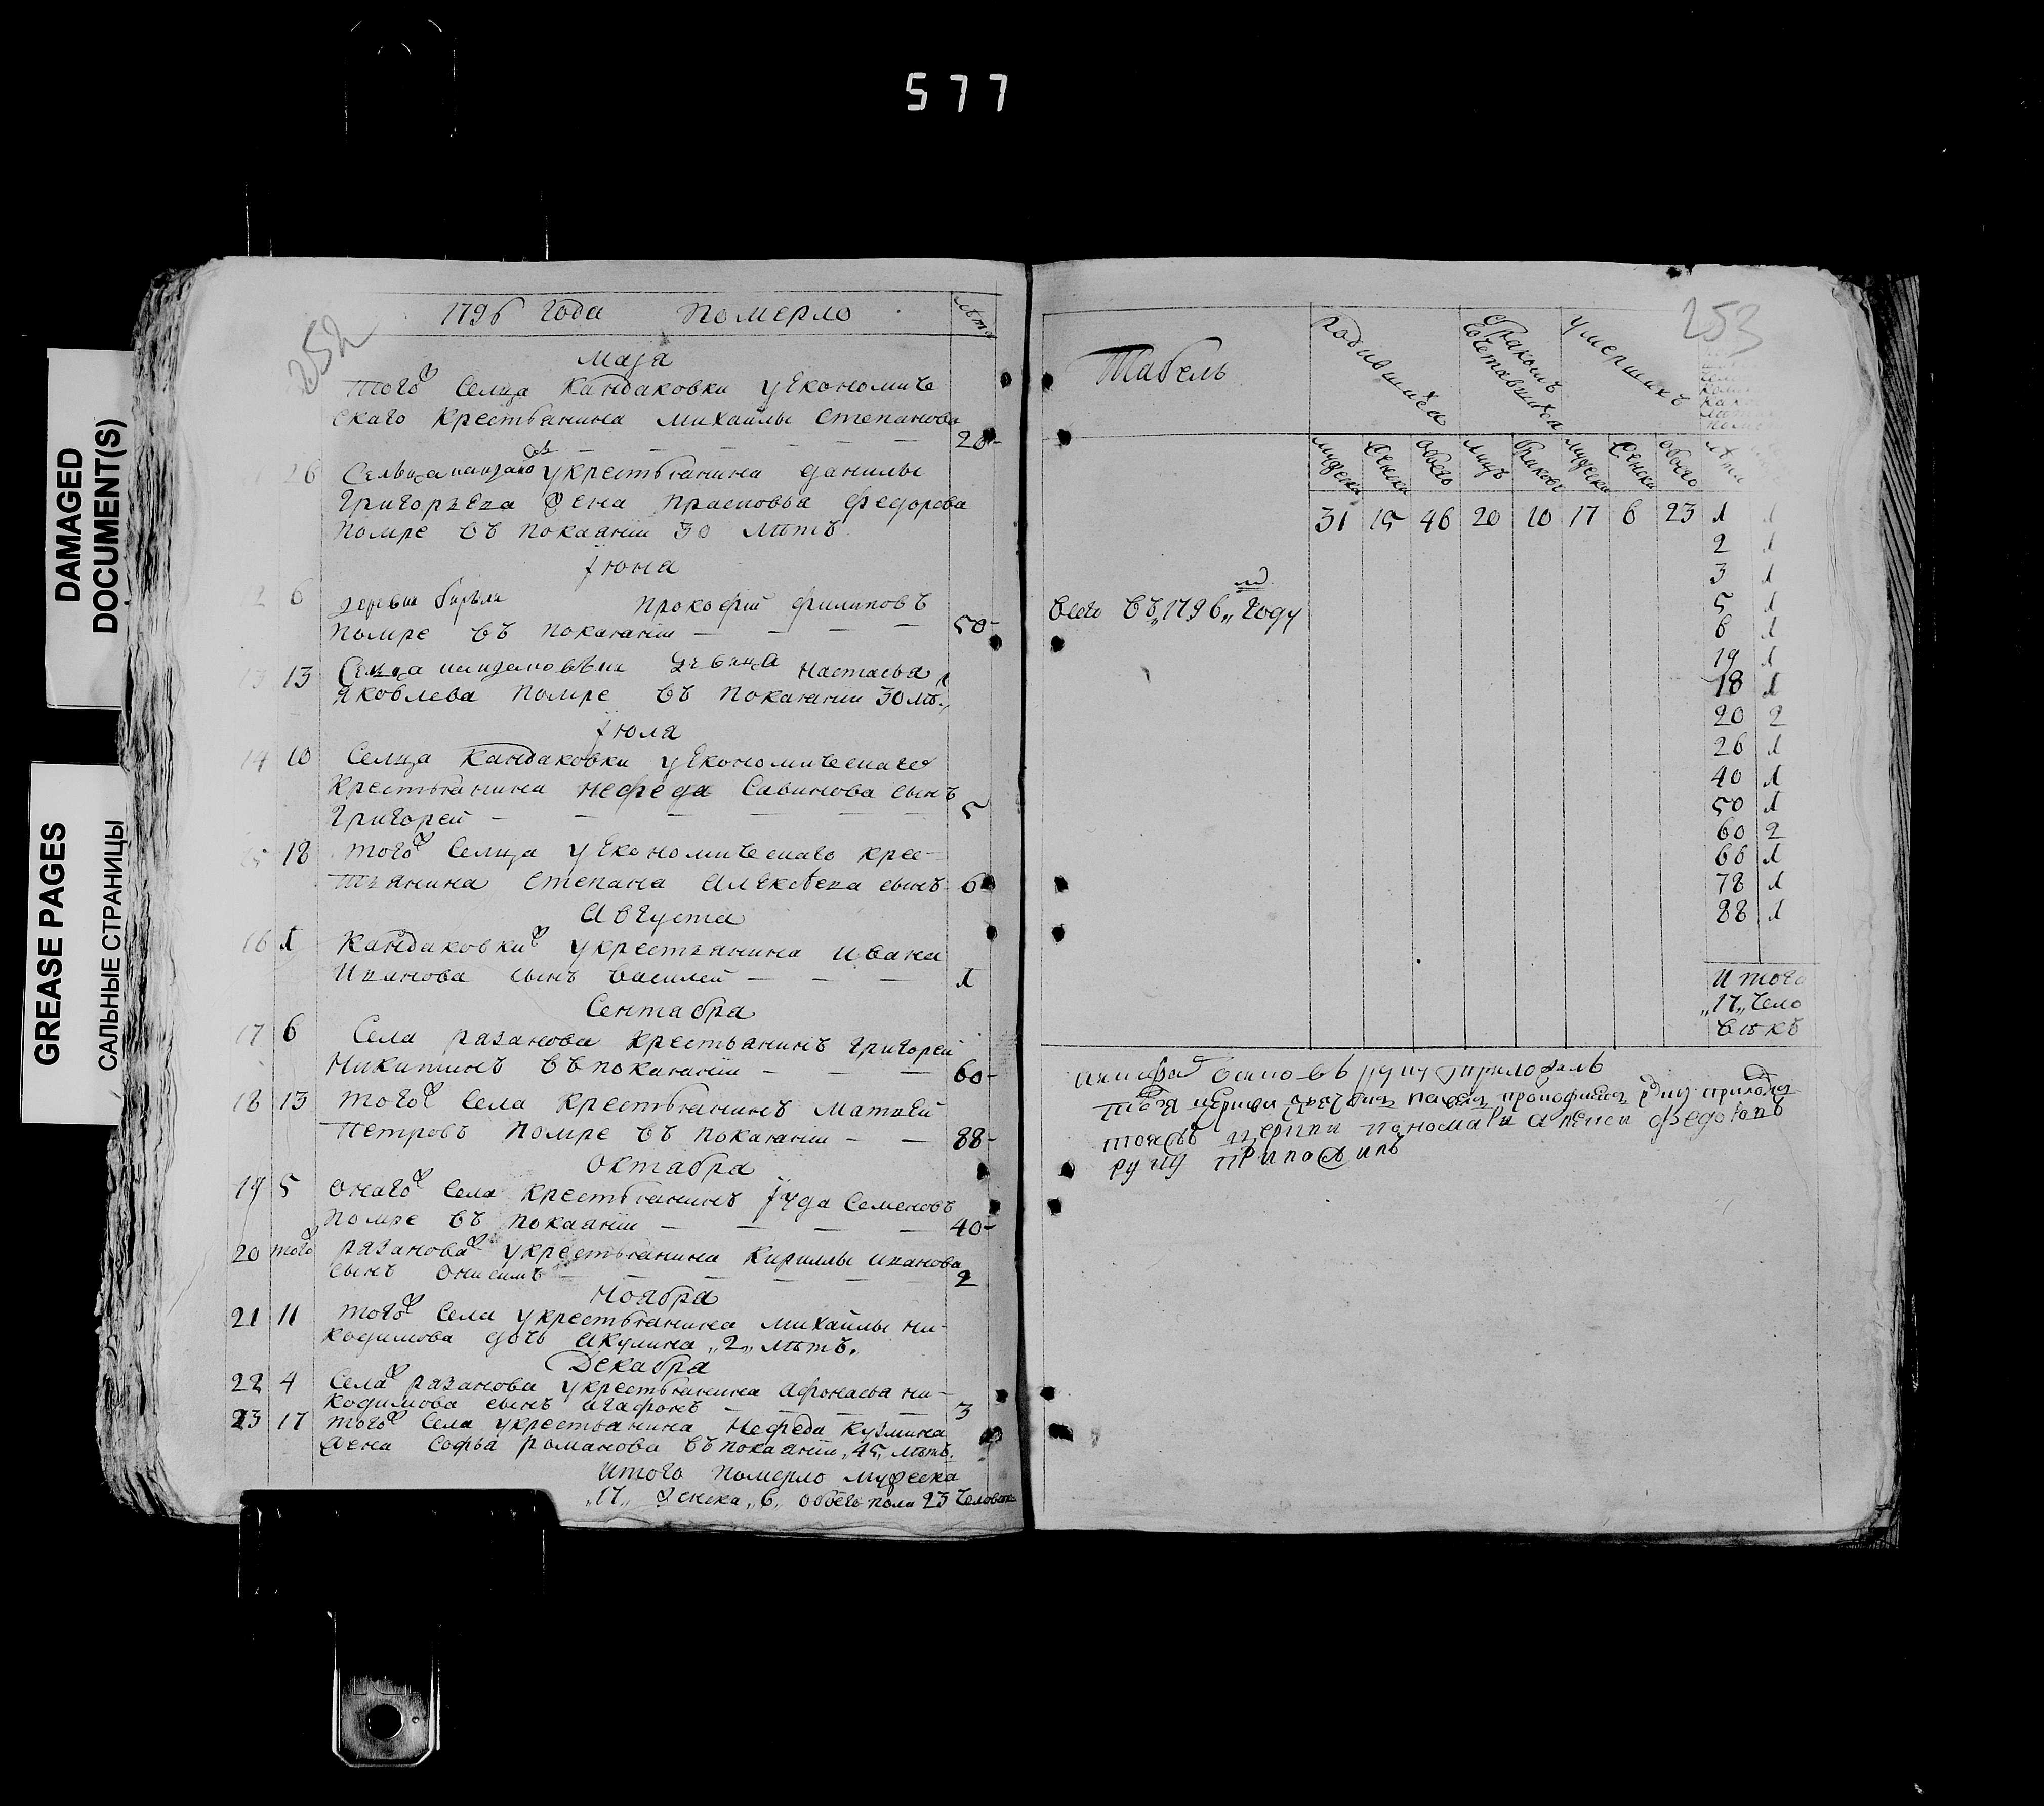 577
DAMAGED
DOCUMENT(S)
GREASE PAGES
САЛЬНЫЕ СТРАНИЦЫ
252
1796 Года Померло
лѣта
Маія
того ж Селца Кандаковки у Економиче
скаго Крестьянина Михайлы Степанова
20
26 Сельца у крестьянина данилы
Григорьева жена прасковья федорова
помре въ покаянии 30 лѣтъ
Іюня
12 6 деревни прокофий филиповъ
помре въ покаянии 50
13 13 Селца девица настасья
яковлева помре въ покаянии 30 лѣ
Іюля
14 10 Селца Кандаковки у Економическаго
крестьянина нефеда Савинова сынъ
Григорей 5
15 18 того ж Селца у Економическаго крес-
тьянина степана алексѣева сынъ 6
Августа
16 1 Кандаковки ж у крестьянина ивана
Иванова сынъ василей 1
Сентября
17 6 Села разанова крестьянинъ григорей
Никитинъ въ покаянии 60
18 13 того ж Села крестьянинъ матвей
Петровъ помре въ покаянии 88
Октября
19 5 онаго ж Села крестьянинъ Іуда Семеновъ
помре въ покаянии 40
20 того ж разанова ж у крестьянина кириллы иванова
сынъ онисимъ 2
Ноября
21 11 того ж Села у крестьянина михайлы ни-
кодимова дочь акулина „2„ лѣтъ.
Декабря
22 4 Села ж разанова у крестьянина афонасья ни-
кодимова сынъ агафонъ 3
23 17 того ж Села у крестьянина Нефеда кузмина
жена софья романова въ покаянии „45„ лѣтъ.
Итого померло мужеска
„17„ женска „6„ обоего пола 23 человека
253
Табель
родившихся
бракомъ сочетавшихся
умершихъ
мужеска женска обоего лицъ браковъ мужеска женска обоего лѣта
31 15 46 20 10 17 6 23
Всего въ „1796„ м Году
1 1
2 1
3 1
5 1
6 1
19 1
18 1
20 2
26 1
40 1
50 1
60 2
66 1
78 1
88 1
Итого
„17„ чело
вѣкъ
руку приложилъ
тояжъ церкви пономарь федотовъ
руку приложилъ